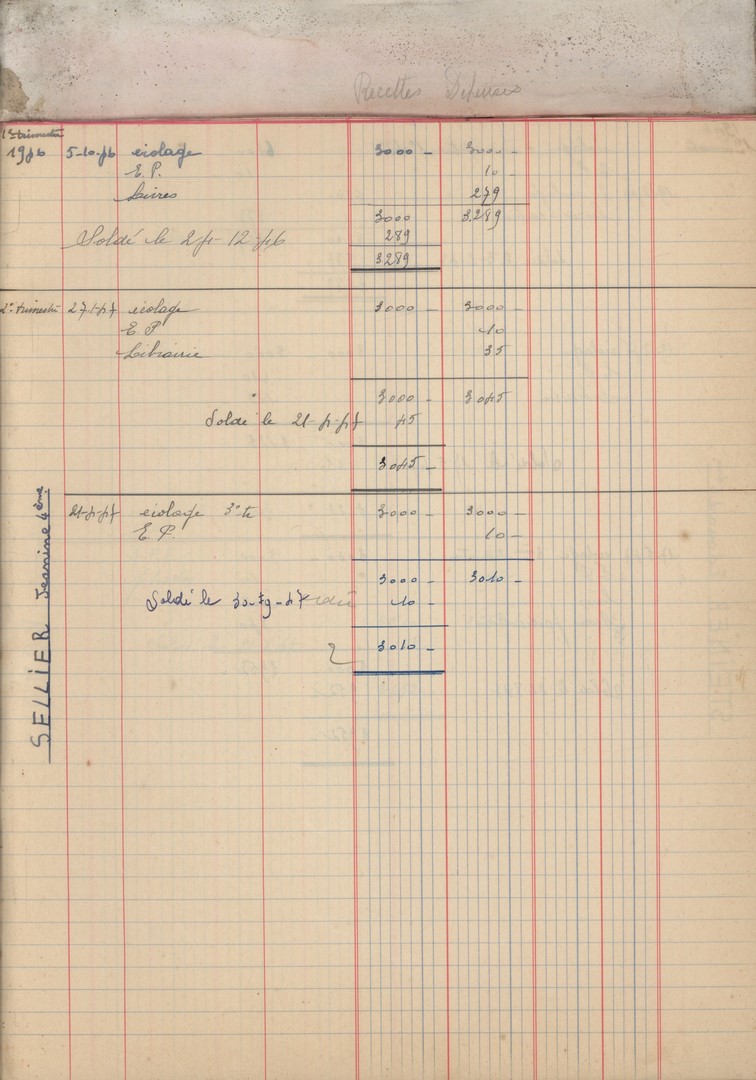 Recettes Dépenses
1er trimestre
1946 5-10-46 écolage 3000 - 3000 -
E.P. 10 -
Livres 279
3000 3289
Soldé le 24-12-46 289
3289
2e trimestre 27-1-47 écolage 3000 - 3000 -
E P 10
Librairie 35
3000 - 3045
Soldé le 21-4-47 45
3045 -
21-4-47 écolage 3e te 3000 - 3000 -
E.P. 10 -
3000 - 3010 -
Soldé le 30-9-47 10 -
2 3010 -
SELLIER Jeanine 4ème